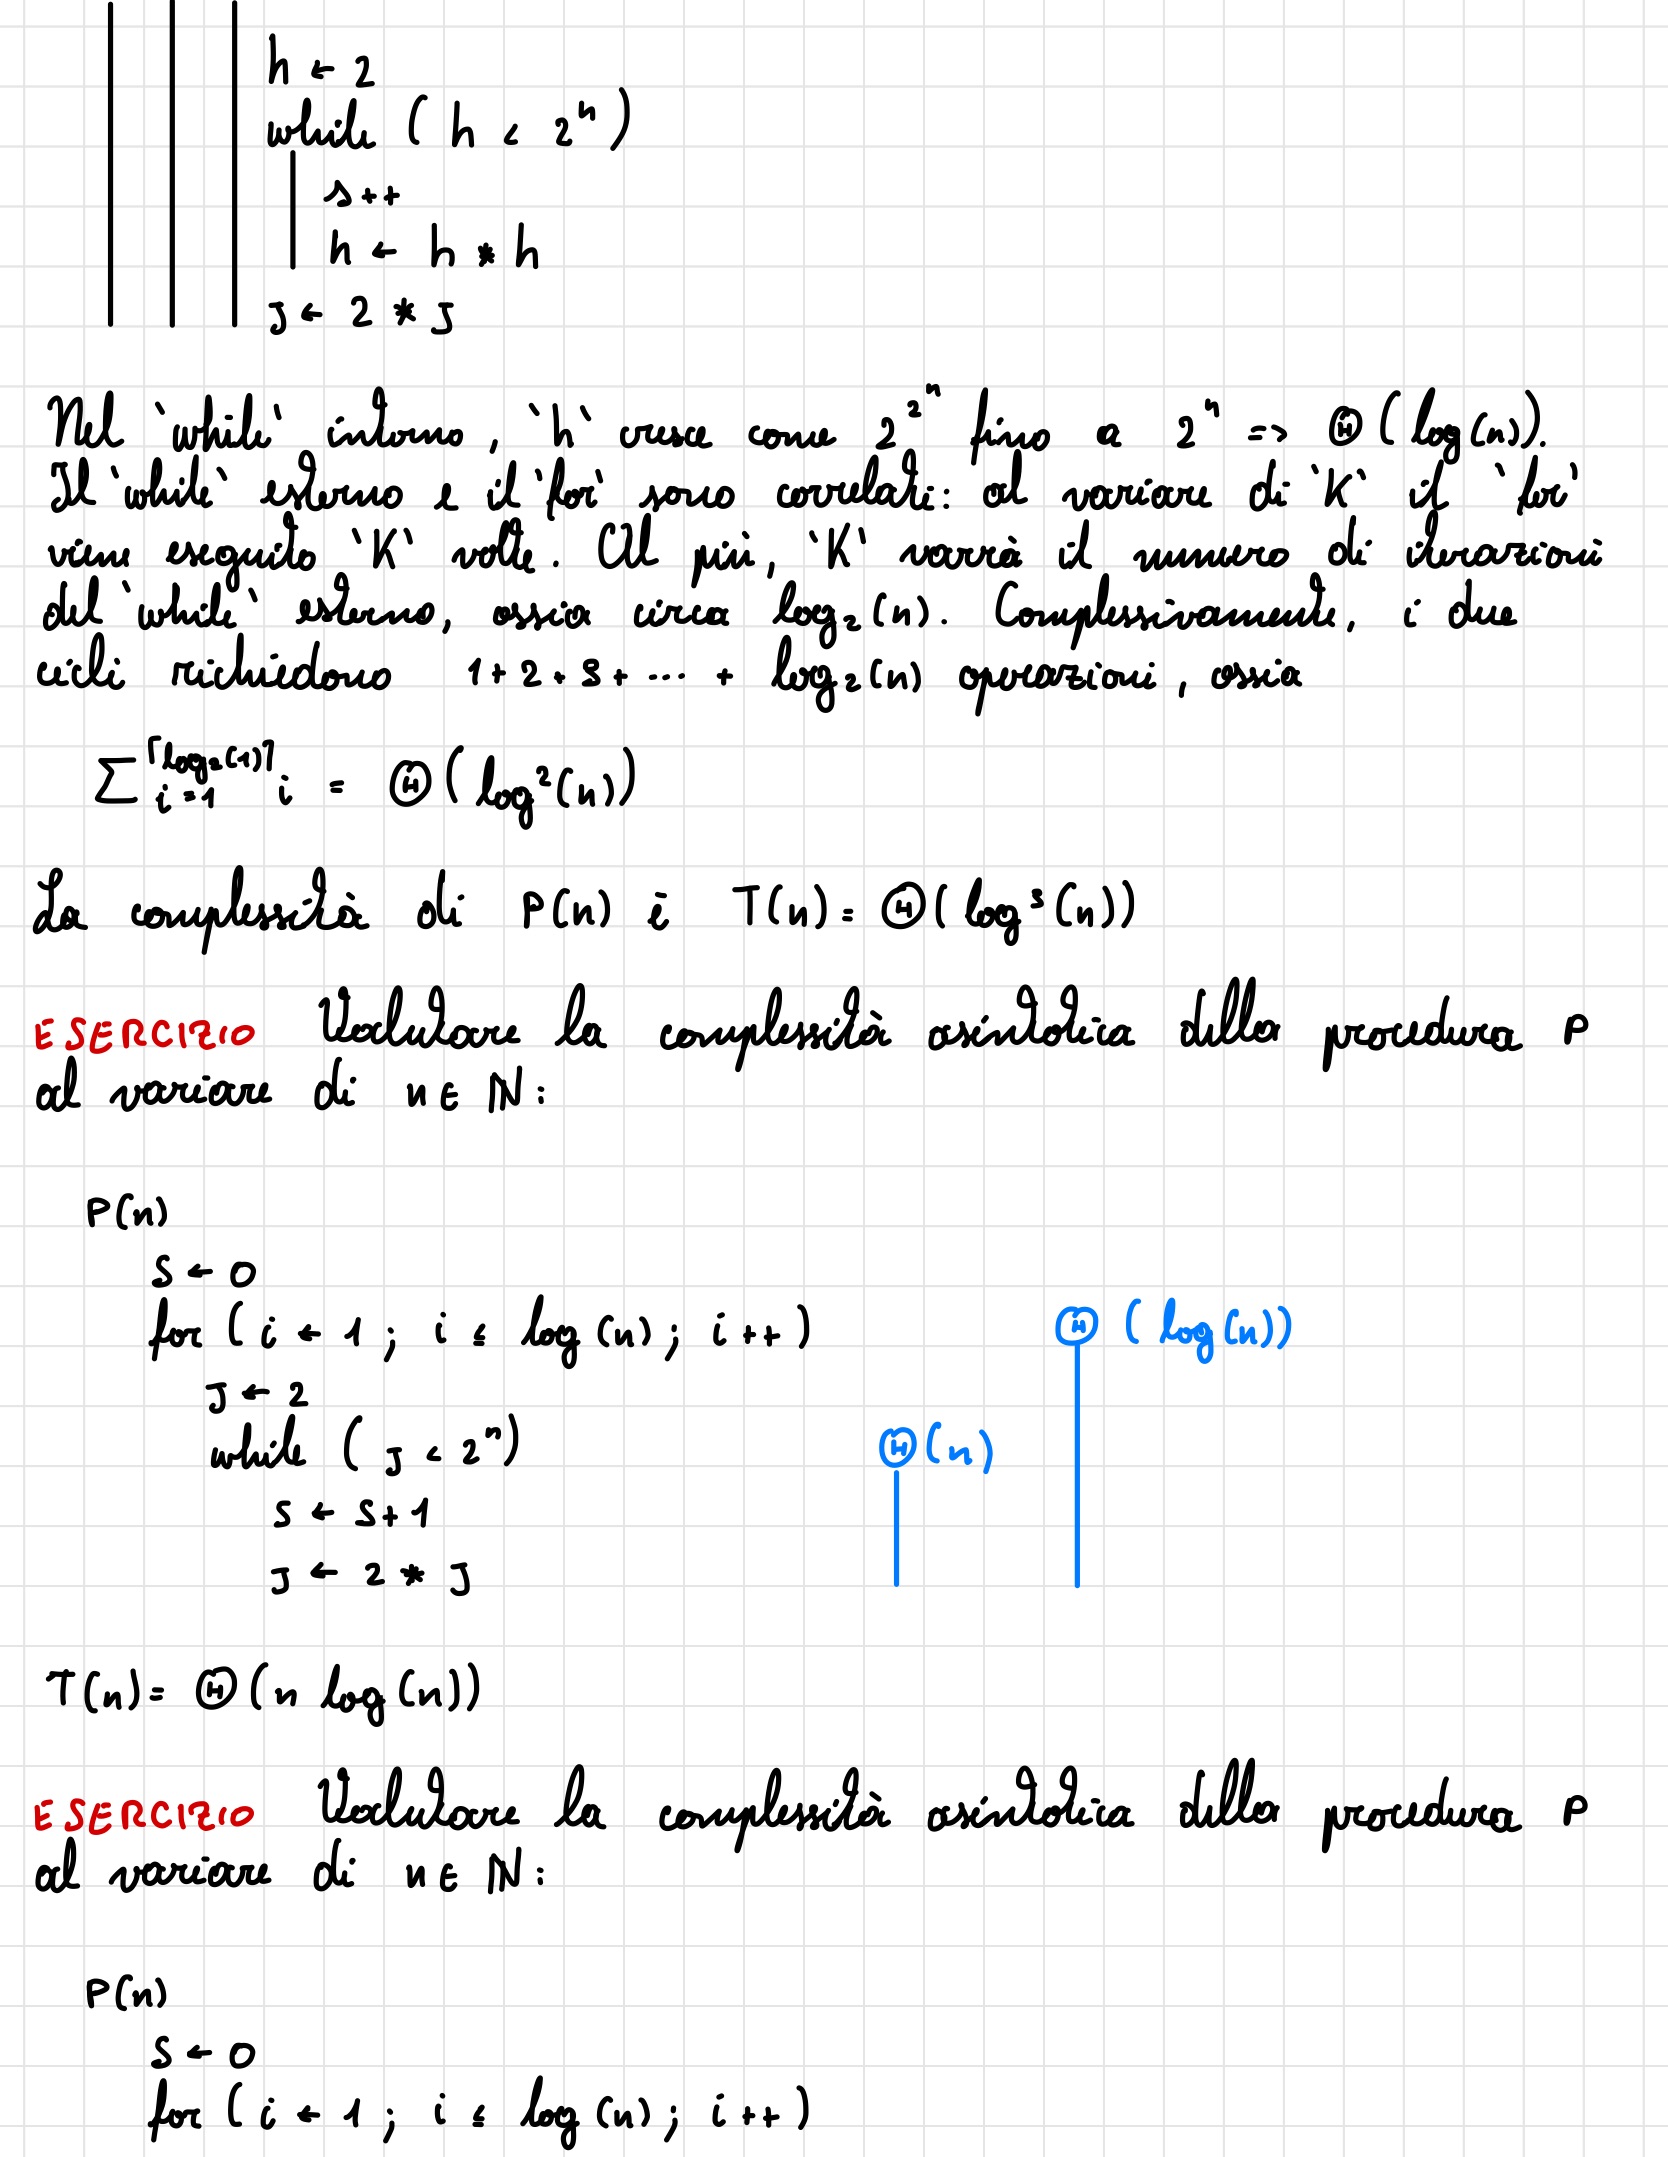 h ← 2
while ( h < 2ⁿ )
s++
h ← h * h
J ← 2 * J
Nel `while` interno, `h` cresce come 2^2^n fino a 2ⁿ => Θ(log(n)).
Il `while` esterno e il `for` sono correlati: al variare di `K` il `for`
viene eseguito `K` volte. Al più, `K` varrà il numero di iterazioni
del `while` esterno, ossia circa log₂(n). Complessivamente, i due
cicli richiedono 1+2+3+ ... + log₂(n) operazioni, ossia
∑_{i=1}^{⌈log₂(1)⌉} i = Θ(log²(n))
La complessità di P(n) è T(n)= Θ(log³(n))
ESERCIZIO Valutare la complessità asintotica della procedura P
al variare di n ∈ ℕ:
P(n)
S ← 0
for ( i ← 1 ; i ≤ log(n) ; i++ ) Θ(log(n))
J ← 2
while ( J < 2ⁿ) Θ(n)
S ← S+1
J ← 2 * J
T(n)= Θ(n log(n))
ESERCIZIO Valutare la complessità asintotica della procedura P
al variare di n ∈ ℕ:
P(n)
S ← 0
for ( i ← 1 ; i ≤ log(n) ; i++ )